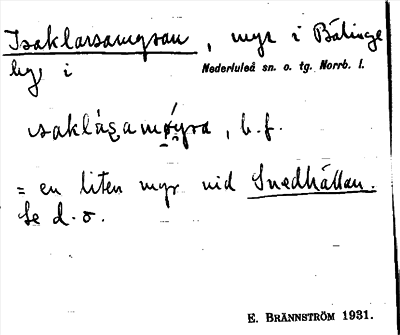 Isaklarsamyran, myr i Bälinge
by i Nederluleå sn. o. tg. Norrb. l.
isaklása møyra, b.f.
= en liten myr vid Snedhällan.
Se d. o.
E. BRÄNNSTRÖM 1931.